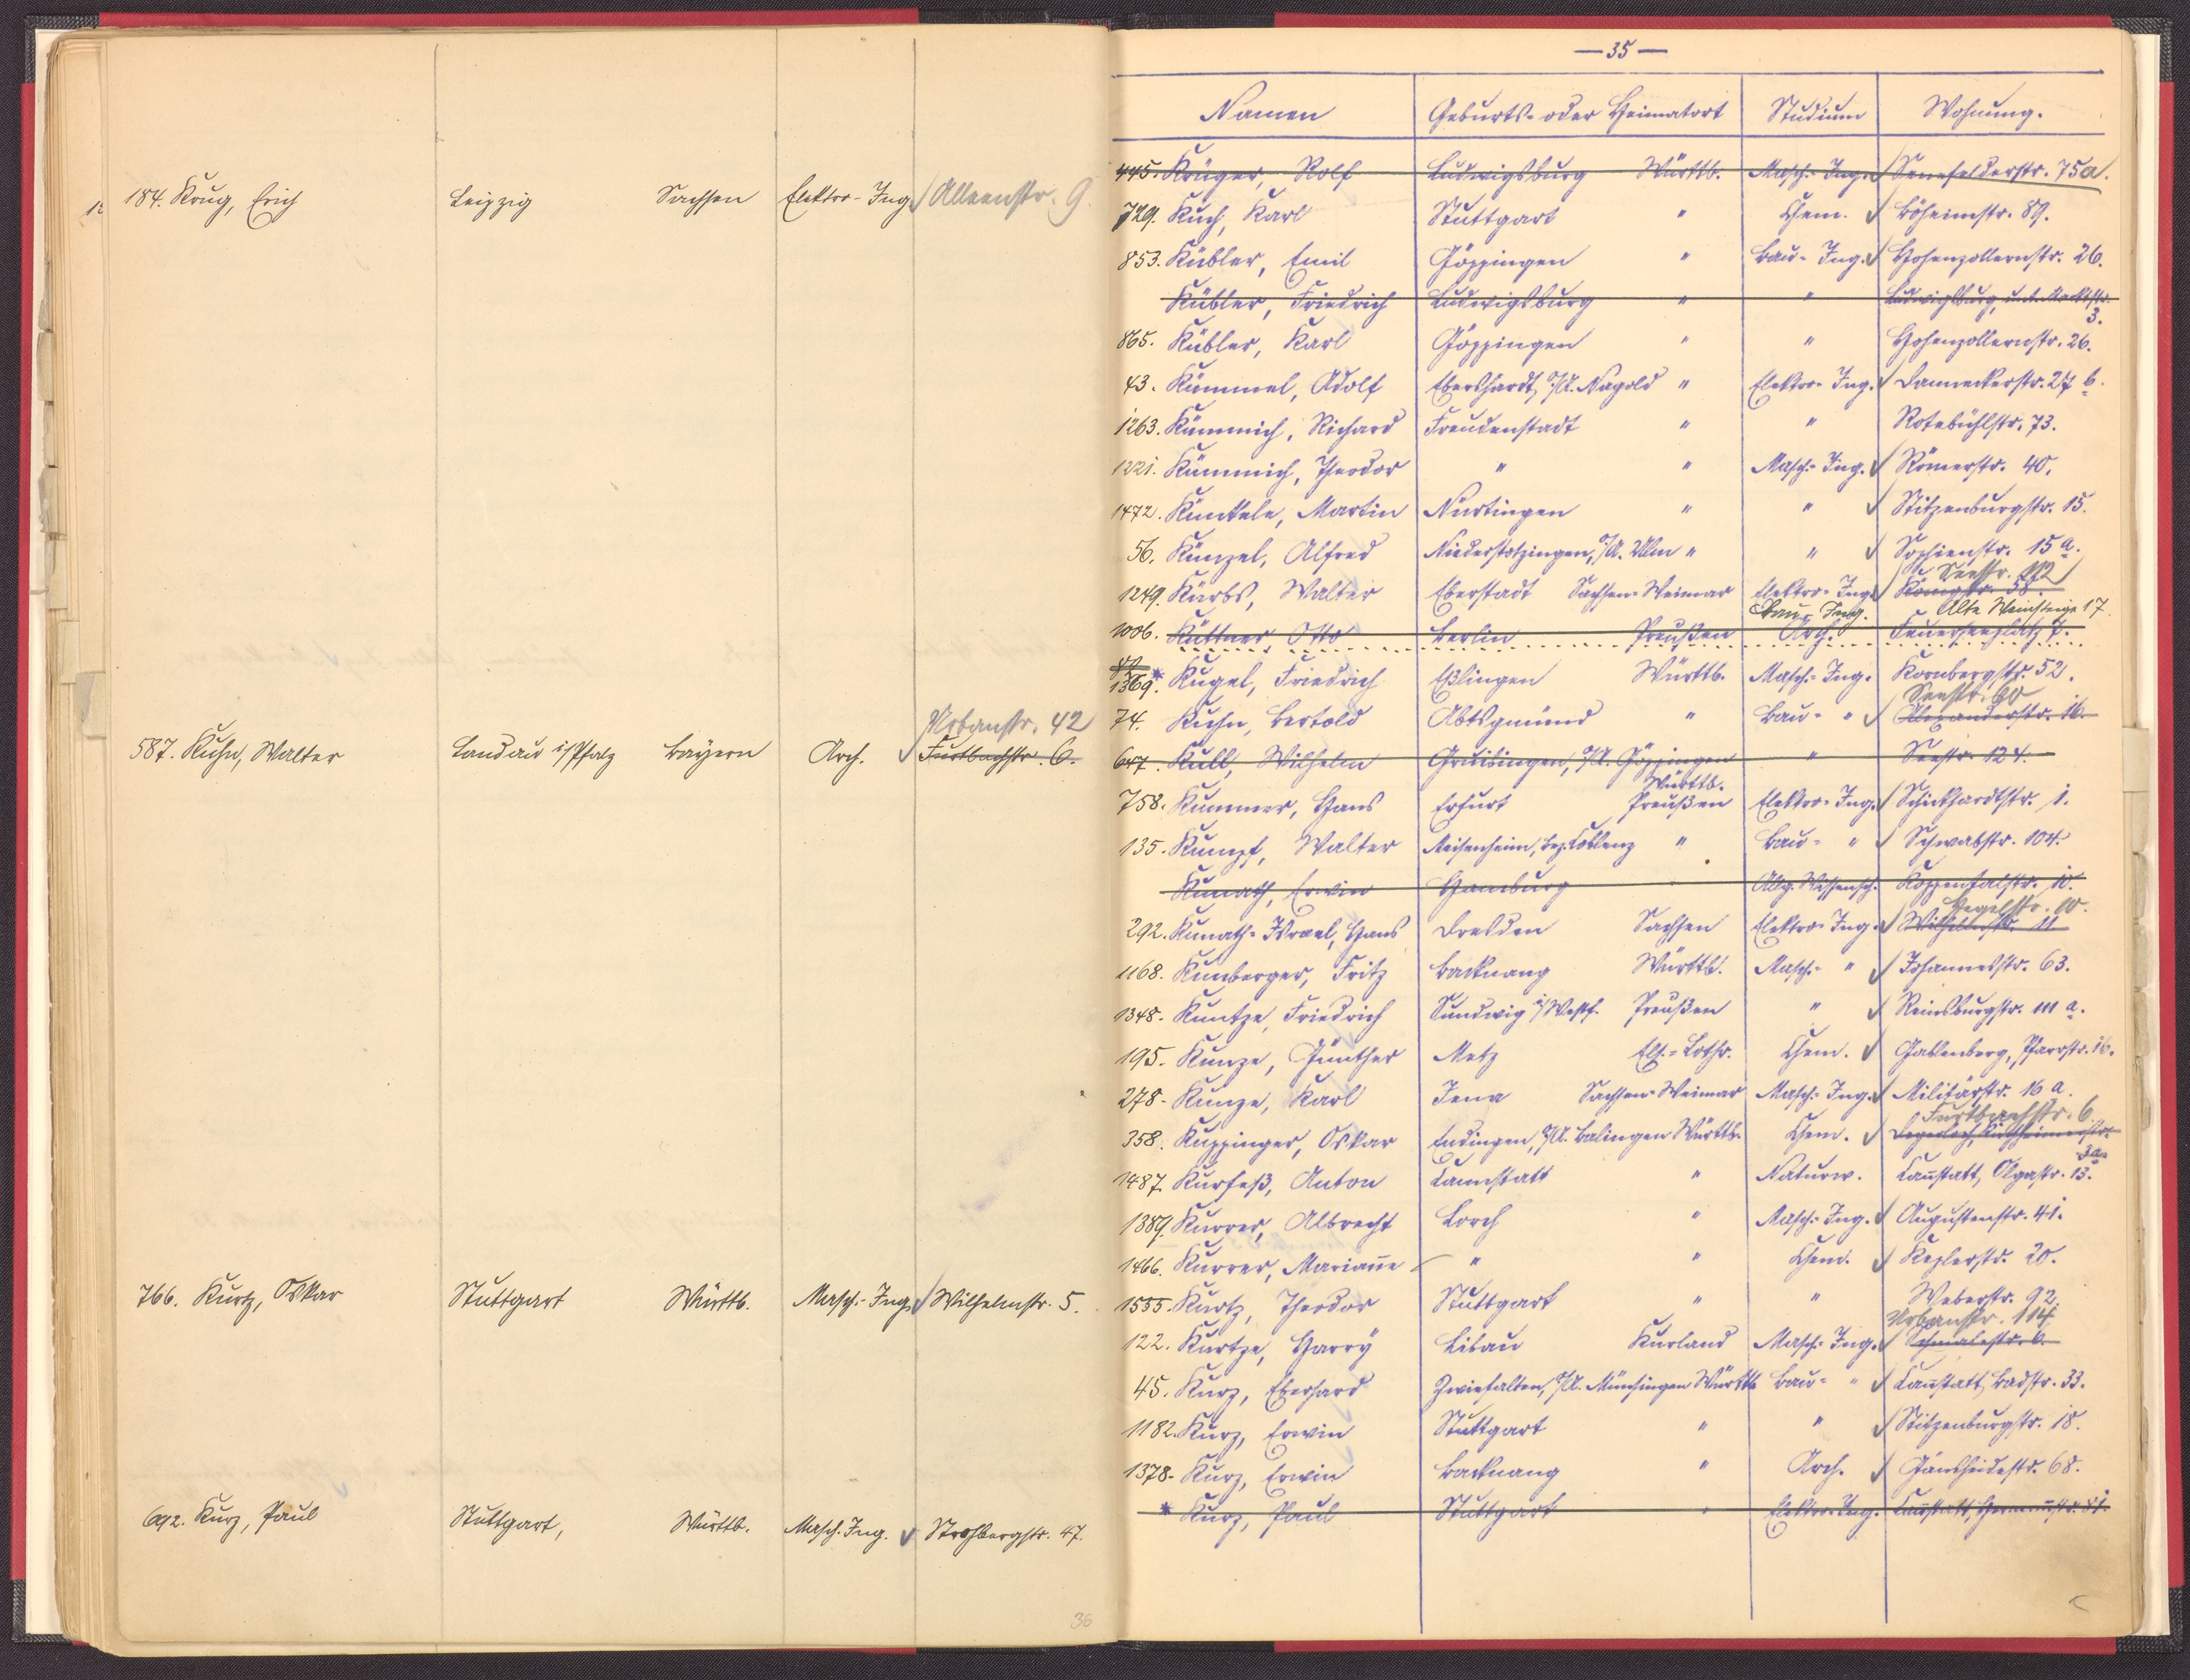 184. Krug, Erich Leipzig Sachsen Elektro-Ing. Alleenstr. 9
Urbanstr. 42
587. Kuhn, Walter Landau i/Pfalz Bayern Arch. Furtbachstr. 6.
766. Kurtz, Oskar Stuttgart Württb. Masch.-Ing. Wilhelmstr. 5.
692. Kurz, Paul Stuttgart, Württb. Masch. Ing. Strohbergstr. 47.
36
— 35 —
Namen Geburts- oder Heimatort Studium Wohnung.
445. Krüger, Rolf Ludwigsburg Württb. Masch.-Ing. Senefelderstr. 75a.
729. Kuch, Karl Stuttgart " Chem. Böheimstr. 89.
853. Kübler, Emil Göppingen " Bau-Ing. Hohenzollernstr. 26.
Kübler, Friedrich Ludwigsburg " " Ludwigsburg, unt. Marktstr. 3.
865. Kübler, Karl Göppingen " " Hohenzollernstr. 26.
43. Kümmel, Adolf Ebershardt, O/A. Nagold " Elektro-Ing. Danneckerstr. 27 b.
1263. Kümmich, Richard Freudenstadt " " Rotebühlstr. 73.
1221. Kümmich, Theodor " " Masch.-Ing. Römerstr. 40.
1472. Künkele, Martin Nürtingen " " Stitzenburgstr. 15.
56. Künzel, Alfred Niederstotzingen, O/A. Ulm " " Sophienstr. 15 a.
Seestr. 112
1249. Kürbs, Walter Eberstadt Sachsen-Weimar Elektro-Ing. Königstr. 58.
Bau-Ing. Alte Weinsteige 17.
1006. Küttner Otto Berlin Preußen Arch. Feuerseeplatz 7.
1369. * Kugel, Friedrich Eßlingen Württb. Masch.-Ing. Kornbergstr. 52.
Seestr. 60
74. Kuhn, Bertold Abtsgmünd " Bau- " Alexanderstr. 16.
647. Kull, Wilhelm Gruibingen, O/A. Göppingen " Seestr. 124.
Württb.
758. Kummer, Hans Erfurt Preußen Elektro-Ing. Schickhardtstr. 1.
135. Kumpf, Walter Meisenheim, Bez. Coblenz " Bau- " Schwabstr. 104.
Kunath, Erwin Hamburg Allg. Wissensch. Koppentalstr. 10.
Hegelstr. 10.
292. Kunath-Israel, Hans Dresden Sachsen Elektro-Ing. Wilhelmstr. 11
1168. Kunberger, Fritz Backnang Württb. Masch.- " Johannesstr. 63.
1348. Kuntze, Friedrich Sundwig i/Westf. Preußen " Reinsburgstr. 111 a.
195. Kunze, Günther Metz Els.-Lothr. Chem. Gablenberg, Pfarrstr. 16.
278. Kunze, Karl Jena Sachsen-Weimar Masch.-Ing. Militärstr. 16 a.
Furtbachstr. 6
358. Kuppinger, Oskar Endingen, O/A. Balingen Württb. Chem. Degerloch,
1487. Kurfeß, Anton Cannstatt " Naturw. Cannstatt, Olgastr. 13.
1389. Kurrer, Albrecht Lorch " Masch.-Ing. Augustenstr. 41.
1466. Kurrer, Marianne " " Chem. Keplerstr. 20.
1555. Kurtz, Theodor Stuttgart " " Weberstr. 92.
Urbanstr. 114
122. Kurtze, Harry Libau Kurland Masch.-Ing. Schmalestr. 6.
45. Kurz, Eberhard Zwiefalten, O/A. Münsingen Württb. Bau- " Cannstatt, Badstr. 33.
1182. Kurz, Erwin Stuttgart " " Stitzenburgstr. 18.
1378. Kurz, Erwin Backnang " Arch. Gänsheidestr. 68.
* Kurz, Paul Stuttgart " Elektro-Ing. Cannstatt, Hermannstr. 81.